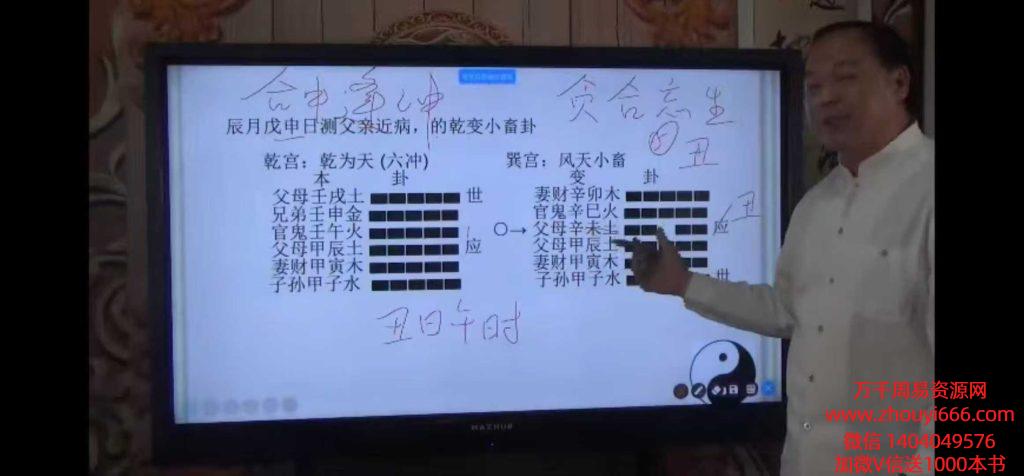 合中逢冲
贪合忘生
辰月戊申日测父亲近病，的乾变小畜卦
丑
乾宫：乾为天 (六冲)
巽宫：风天小畜
本 卦
变 卦
父母壬戌土 世
兄弟壬申金
官鬼壬午火
父母甲辰土 应
妻财甲寅木
子孙甲子水
○→
妻财辛卯木
官鬼辛巳火
父母辛未土 应
父母甲辰土
妻财甲寅木
子孙甲子水 世
丑
丑日午时
MAXHUB
万千周易资源网
www.zhouyi666.com
微信 1404049576
加微V信送1000本书